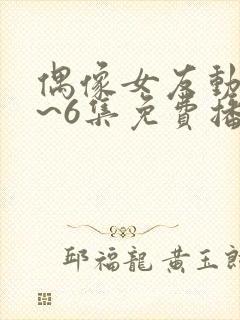 偶像女友動
~6集免費播
邱福龍 黃玉郎